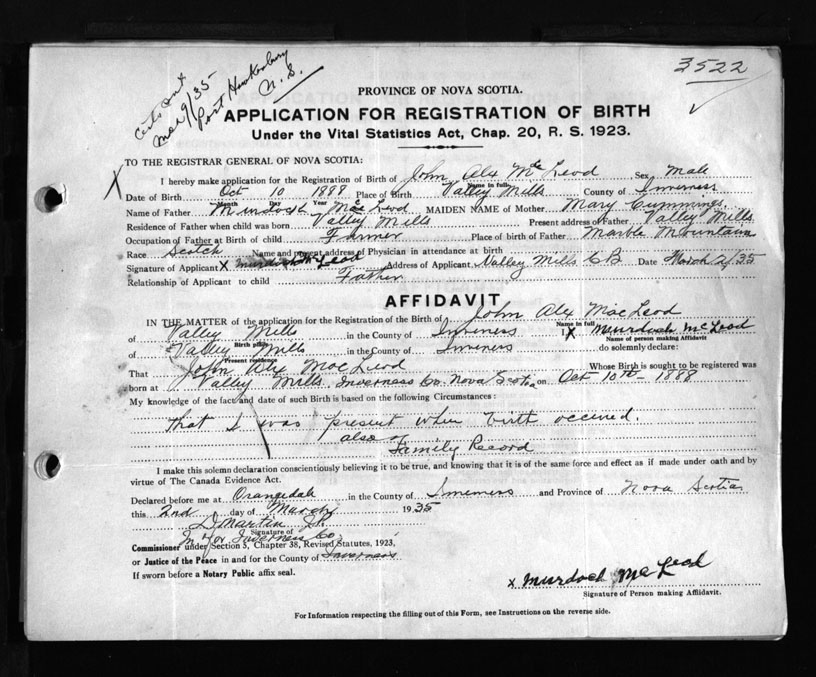 Certs Sent
Mar 9/35
Port Hawkesbury
N. S.
3522
PROVINCE OF NOVA SCOTIA.
APPLICATION FOR REGISTRATION OF BIRTH
Under the Vital Statistics Act, Chap. 20, R. S. 1923.
TO THE REGISTRAR GENERAL OF NOVA SCOTIA:
X I hereby make application for the Registration of Birth of John Alex McLeod Sex Male
Name in full
Date of Birth Oct 10 1888 Place of Birth Valley Mills County of Inverness
Month Day Year
Name of Father Murdock MacLeod MAIDEN NAME of Mother Mary Cummings
Residence of Father when child was born Valley Mills Present address of Father Valley Mills
Occupation of Father at Birth of child Farmer Place of birth of Father Marble Mountain
Race Scotch Name and present address of Physician in attendance at birth
Signature of Applicant X Murdock McLeod Address of Applicant Valley Mills CB Date March 2/35
Relationship of Applicant to child Father
AFFIDAVIT
IN THE MATTER of the application for the Registration of the Birth of John Alex MacLeod
Name in full
of Valley Mills in the County of Inverness I X Murdock McLeod
Birth place Name of person making Affidavit
of Valley Mills in the County of Inverness do solemnly declare:
Present residence
That John Alex MacLeod Whose Birth is sought to be registered was
born at Valley Mills, Inverness Co. Nova Scotia on Oct 10th - 1888
My knowledge of the fact and date of such Birth is based on the following Circumstances:
That I was present when birth occured.
also
Family Record
I make this solemn declaration conscientiously believing it to be true, and knowing that it is of the same force and effect as if made under oath and by
virtue of The Canada Evidence Act.
Declared before me at Orangedale in the County of Inverness and Province of Nova Scotia
this 2nd day of March 1935
D Martin
Signature of
in & for Inverness Co.
Commissioner under Section 5, Chapter 38, Revised Statutes, 1923,
or Justice of the Peace in and for the County of Inverness
If sworn before a Notary Public affix seal.
x Murdock McLeod
Signature of Person making Affidavit.
For Information respecting the filling out of this Form, see Instructions on the reverse side.